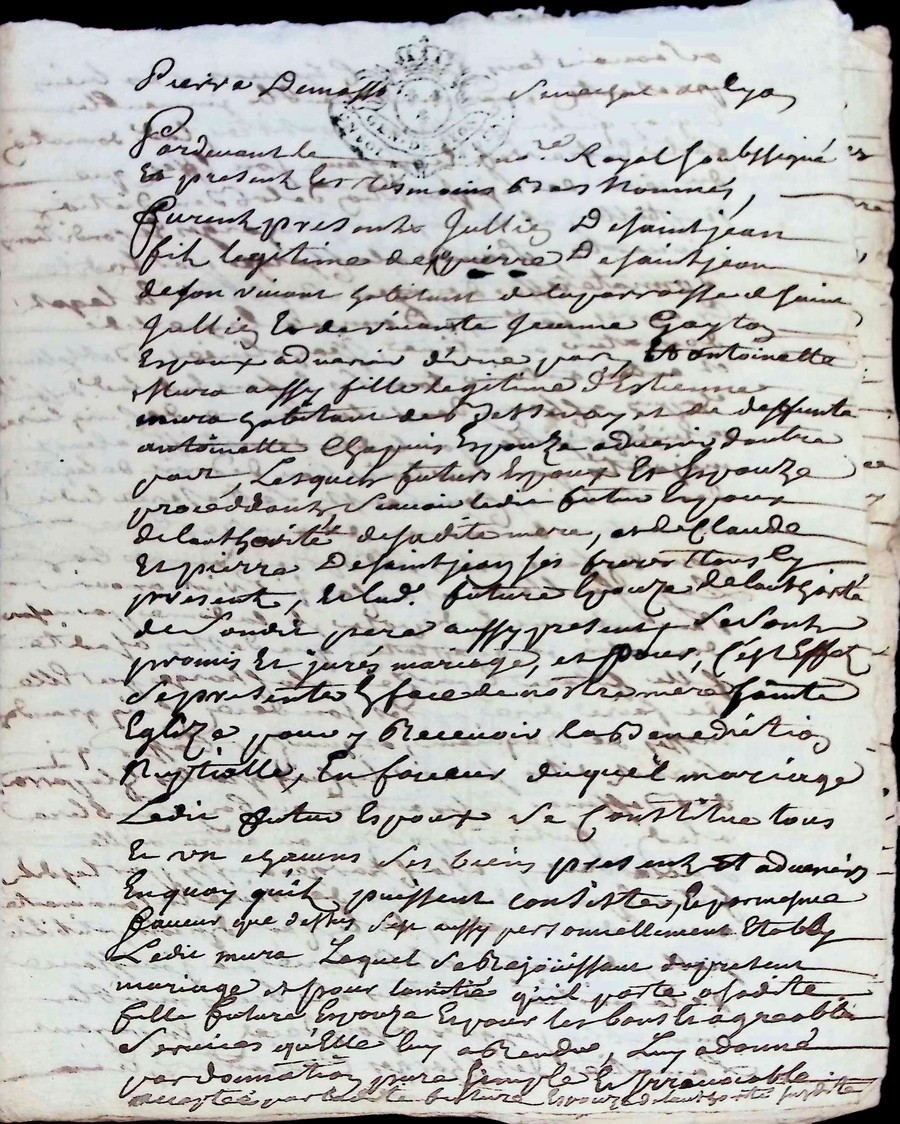 Pierre Demasso Senechal de Lyon
Pardevant le no.re Royal soubssigné
Et present les tesmoins bas nommés,
furent presents Jullien Desaintjean
fils legitime de pierre Desaintjean
de son vivant habitant de la parroisse de saint
Jullien Et de vivante Jeanne Gayton
Espoux advenir d'une part, Et antoinette
Mura aussy fille legitime d'Estienne
mura habitant de et de deffunte
antoinette Chapuis Espouze advenir d'autre
part, Lesquels futurs Espoux Et Espouze
proceddants sçavoir ledit futur Espoux
de lauthorité de sadite mere, et de Claude
Et pierre Desaintjean ses freres tous Ey
present, et lad. future Espouze de lauthorité
de sondit pere aussy present, se sont
promis Et jurés mariage, et pour, C'est Effet
se presenter En face de nostre mere sainte
Eglize pour y Recevoir la Benediction
Nuptialle, En faveur duquel mariage
Ledit futur Espoux se Constitue tous
Et un chacuns ses biens present Et advenirs
En quoy qu'ils puissent consister, Et par mesme
faveur que dessus s'est aussy personnellement Etably
Ledit mura Lequel se Rejouissant du present
mariage et pour lamitié qu'il porte a sadite
fille future Espouze Et pour les bons Et agreables
services qu'Elle luy a Rendu, Luy a donné
par donnation pure simple Et Irrevocable
acceptée par ladite future Espouze de lauthorité susdite